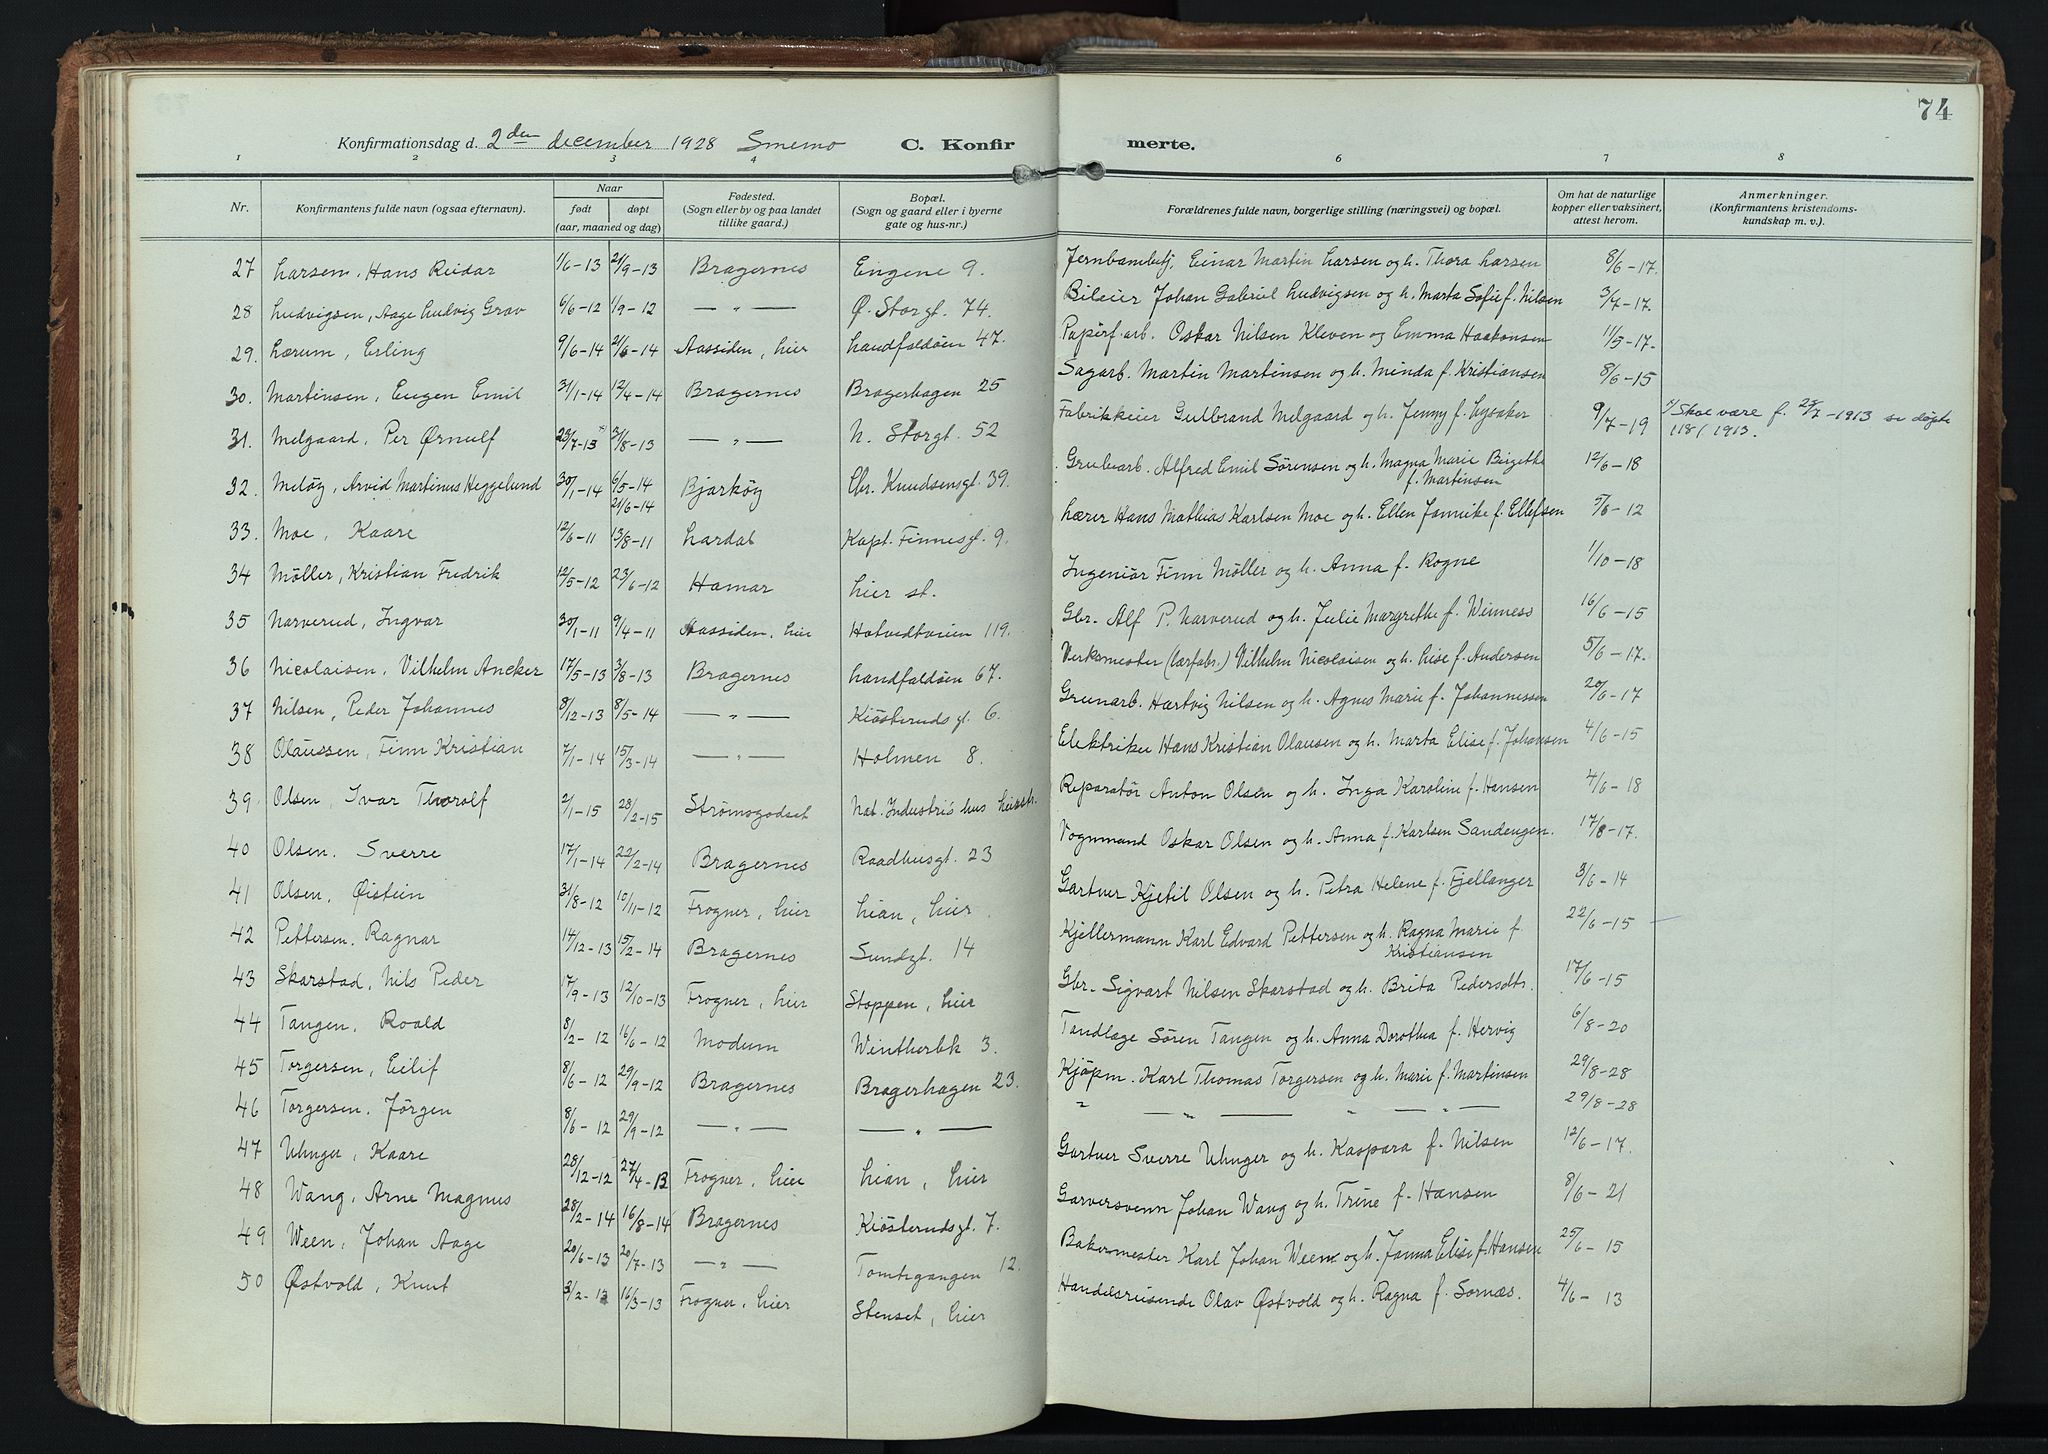 74
Konfirmationsdag d. 2den december 1928 Smemo C. Konfirmerte.
1 2 3 4 5 6 7 8
Nr. Konfirmantens fulde navn (ogsaa efternavn). Naar født døpt (aar, maaned og dag) Fødested. (Sogn eller by og paa landet tillike gaard.) Bopæl. (Sogn og gaard eller i byerne gate og hus-nr.) Forældrenes fulde navn, borgerlige stilling (næringsvei) og bopæl. Om hat de naturlige kopper eller vaksinert, attest herom. Anmerkninger. (Konfirmantens kristendomskundskap m. v.).
27 Larsen, Hans Reidar 1/6-13 21/9-13 Bragernes Engene 9. Jernbanebetj. Einar Martin Larsen og h. Thora Larsen 8/6-17.
28 Ludvigsen, Aage Ludvig Grav 6/6-12 1/9-12 — " — Ø. Storgt. 74. Bileier Johan Gabriel Ludvigsen og h. Marta Sofie f. Nilsen 3/7-17.
29. Lærum, Erling 9/6-14 21/6-14 Aassiden, hier Landfaldøen 47. Papirf. arb. Oskar Nilsen Kleven og Emma Haakonsen 11/5-17.
30. Martinsen, Eugen Emil 31/1-14 12/4-14 Bragernes Bragerhagen 25 Sagarb. Martin Martinsen og h. Minda f. Kristiansen 8/6-15
31. Melgaard, Per Ørnulf 23/7-13 *) 31/8-13 — " — N. Storgt. 52 Fabrikkeier Gulbrand Melgaard og h. Jenny f. Lysaker 9/7-19 *) Skal være f. 25/7-1913 se døpte 118/1913.
32. Meløy, Arvid Martinus Heggelund 30/1-14 6/5-14 21/6-14 Bjarkøy Chr. Knudsensgt. 39. Grubearb. Alfred Emil Sørensen og h. Magna Marie Birgethe f. Martinsen 12/6-18
33. Moe, Kaare 12/6-11 13/8-11 Lardal Kapt. Finnesgt. 9. Lærer Hans Mathias Karlsen Moe og h. Ellen Jannike f. Ellefsen 5/6-12
34 Møller, Kristian Fredrik 12/5-12 23/6-12 Hamar hier st. Ingeniør Finn Møller og h. Anna f. Rogne 1/10-18
35 Narverud, Ingvar 30/1-11 9/4-11 Aassiden, hier Hotvedtveien 119. Gbr. Alf P. Narverud og h. Julie Margrethe f. Winness 16/6-15
36 Nicolaisen, Vilhelm Ancker 17/5-13 3/8-13 Bragernes Landfaldøen 67. Verksmester (lærfabr.) Vilhelm Nicolaisen og h. Lise f. Andersen 5/6-17.
37 Nilsen, Peder Johannes 8/12-13 8/5-14 — " — Kiøsterudsgt. 6. Grunarb. Hartvig Nilsen og h. Agnes Marie f. Johannessen 20/6-17
38 Olaussen, Finn Kristian 7/1-14 15/3-14 — " — Holmen 8. Elektriker Hans Kristian Olausen og h. Marta Elise f. Johansen 4/6-15
39. Olsen, Ivar Thorolf 2/1-15 28/2-15 Strømsgodset Nat. Industris hus Reparatør Anton Olsen og h. Inga Karoline f. Hansen 4/6-18
40 Olsen. Sverre 17/1-14 22/2-14 Bragernes Raadhusgt. 23 Vognmand Oskar Olsen og h. Anna f. Karlsen Sandengen. 17/8-17.
41 Olsen, Øistein 31/8-12 10/11-12 Frogner, hier Lian, hier. Gartner Kjetil Olsen og h. Petra Helene f. Fjellanger 3/6-14
42 Pettersen. Ragnar 14/12-13 15/2-14 Bragernes Sundgt. 14 Kjellermann Karl Edvard Pettersen og h. Ragna Marie f. Kristiansen 22/6-15
43 Skarstad, Nils Peder 17/9-13 12/10-13 Frogner, hier Stoppen, hier Gbr. Sigvart Nilsen Skarstad og h. Brita Pedersdtr. 17/6-15
44 Tangen, Roald 8/2-12 16/6-12 Modum Wintherbk 3. Tandlæge Søren Tangen og h. Anna Dorothea f. Hervig 6/8-20
45 Torgersen, Eilif 8/6-12 29/9-12 Bragernes Bragerhagen 23. Kjøpm. Karl Thomas Torgersen og h. Marie f. Martinsen 29/8-28
46 Torgersen. Jørgen 8/6-12 29/9-12 — " — — " — " — " — " — " — 29/8-28
47 Uhnger, Kaare 28/12-12 27/4-13 Frogner, hier Lian, hier Gartner Sverre Uhnger og h. Kaspara f. Nilsen 12/6-17.
48 Wang, Arne Magnus 28/2-14 16/8-14 Bragernes Kiøsterudsgt. 7. Garversvenn Johan Wang og h. Trine f. Hansen 8/6-21
49 Ween, Johan Aage 20/6-13 20/7-13 — " — Tomtegangen 12. Bakermester Karl Johan Ween og h. Janna Elise f. Hansen 25/6-15
50 Østvold, Knut 3/2-13 16/3-13 Frogner, hier Stenset, hier Handelsreisende Olav Østvold og h. Ragna f. Sornæs. 4/6-13